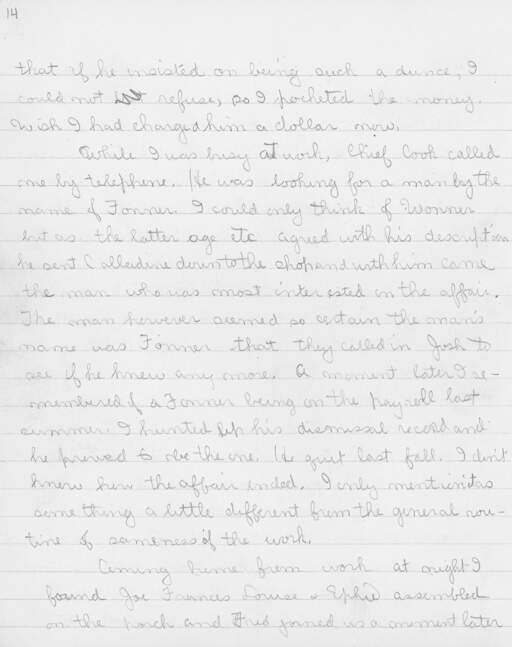 14
that if he insisted on being such a dunce, I
could not refuse, so I pocketed the money.
Wish I had charged him a dollar now.
While I was busy at work, Chief Cook called
me by telephone. He was looking for a man by the
name of Fonner. I could only think of Wonner
but as the latter age etc agreed with his description
he sent Calleidine down to the shop and with him came
the man who was most interested in the affair.
The man however seemed so certain the man's
name was Fonner that they called in Josh to
see if he knew any more. A moment later I re-
membered of a Fonner being on the payroll last
summer. I hunted up his dismissal record and
he proved to be the one. He quit last fall. I don't
know how the affair ended. I only mention it as
something a little different from the general rou-
tine of sameness of the work.
Coming home from work at night I
found Joe Francis Louise & Ephie assembled
on the porch and Fred joined us a moment later